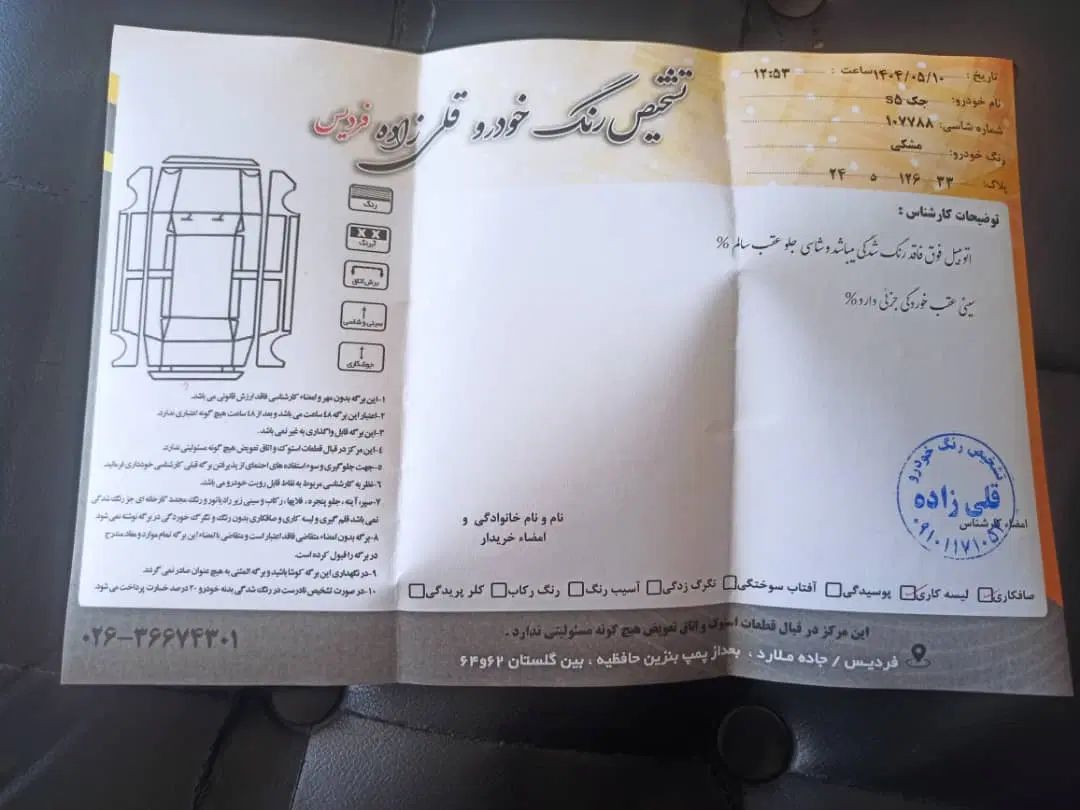 تشخیص رنگ خودرو قلی زاده فردیس
تاریخ : ۱۴۰۴/۰۵/۱۰ ساعت : ۱۲:۵۳
نام خودرو: جک s۵
شماره شاسی: ۱۰۷۷۸۸
رنگ خودرو: مشکی
پلاک: ۳۳ ۱۲۶ ۵ ۲۴
توضیحات کارشناس :
اتومبیل فوق فاقد رنگ شدگی میباشد و شاسی جلو عقب سالم %
سینی عقب خوردگی جزئی دارد %
رنگ
آبرنگ
برش اتاق
سینی و شاسی
جوشکاری
۱-این برگه بدون مهر و امضاء کارشناسی فاقد ارزش قانونی می باشد.
۲-اعتبار این برگه ۴۸ ساعت می باشد و بعد از ۴۸ ساعت هیچ گونه اعتباری ندارد.
۳-این برگه قابل واگذاری به غیر نمی باشد.
۴-این مرکز در قبال قطعات استوک و اتاق تعویض هیچ گونه مسئولیتی ندارد.
۵-جهت جلوگیری و سوء استفاده های احتمالی از پذیرفتن برگه قبلی کارشناسی خودداری فرمائید.
۶-نظریه کارشناسی مربوط به نقاط قابل رویت خودرو می باشد.
۷-سپر، آینه ، جلو پنجره ، قلاپها ، رکاب و سینی زیر رادیاتور و رنگ مجدد کارخانه ای جز رنگ شدگی
نمی باشد قلم گیری و لیسه کاری و صافکاری بدون رنگ و تگرگ خوردگی در برگه نوشته نمی شود.
۸-برگه بدون امضاء متقاضی فاقد اعتبار است و متقاضی با امضاء این برگه تمام موارد و مفاد مندرج
در برگه را قبول کرده است.
۹-در نگهداری این برگه کوشا باشید و برگه المثنی به هیچ عنوان صادر نمی گردد.
۱۰-در صورت تشخیص نادرست در رنگ شدگی بدنه خودرو ۲۰ درصد خسارت پرداخت می شود.
نام و نام خانوادگی و
امضاء خریدار
تشخیص رنگ خودرو
قلی زاده
امضاء کارشناس
صافکاری لیسه کاری پوسیدگی آفتاب سوختگی تگرگ زدگی آسیب رنگ رنگ رکاب کلر پریدگی
این مرکز در قبال قطعات استوک و اتاق تعویض هیچ گونه مسئولیتی ندارد .
فردیس / جاده ملارد ، بعداز پمپ بنزین حافظیه ، بین گلستان ۶۲و۶۴
۰۲۶-۳۶۶۷۴۳۰۱